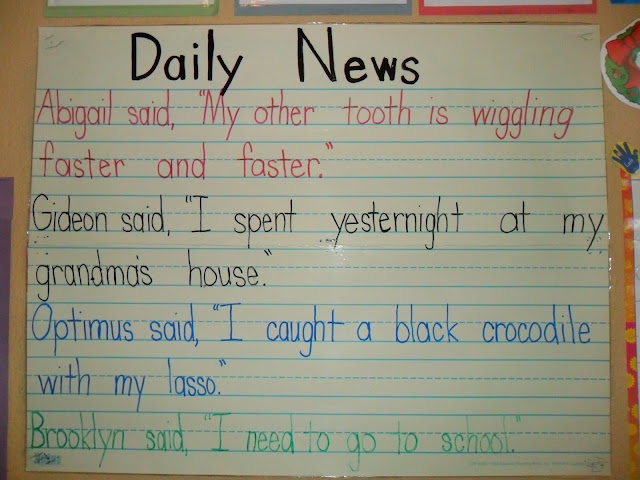 Daily News
Abigail said, "My other tooth is wiggling
faster and faster."
Gideon said, "I spent yesternight at my
grandma's house."
Optimus said, "I caught a black crocodile
with my lasso."
Brooklyn said, "I need to go to school."